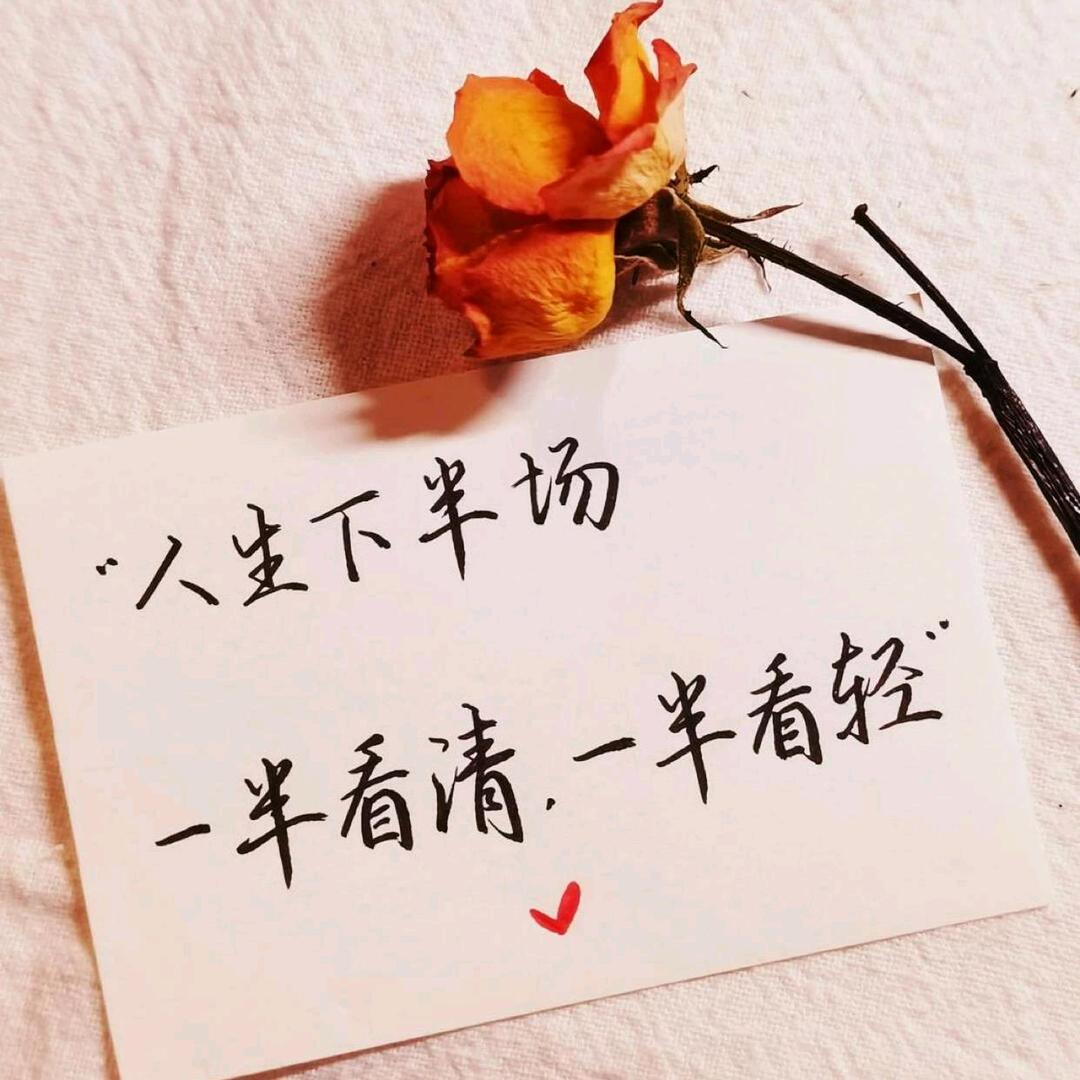 “人生下半场
一半看清.一半看轻”